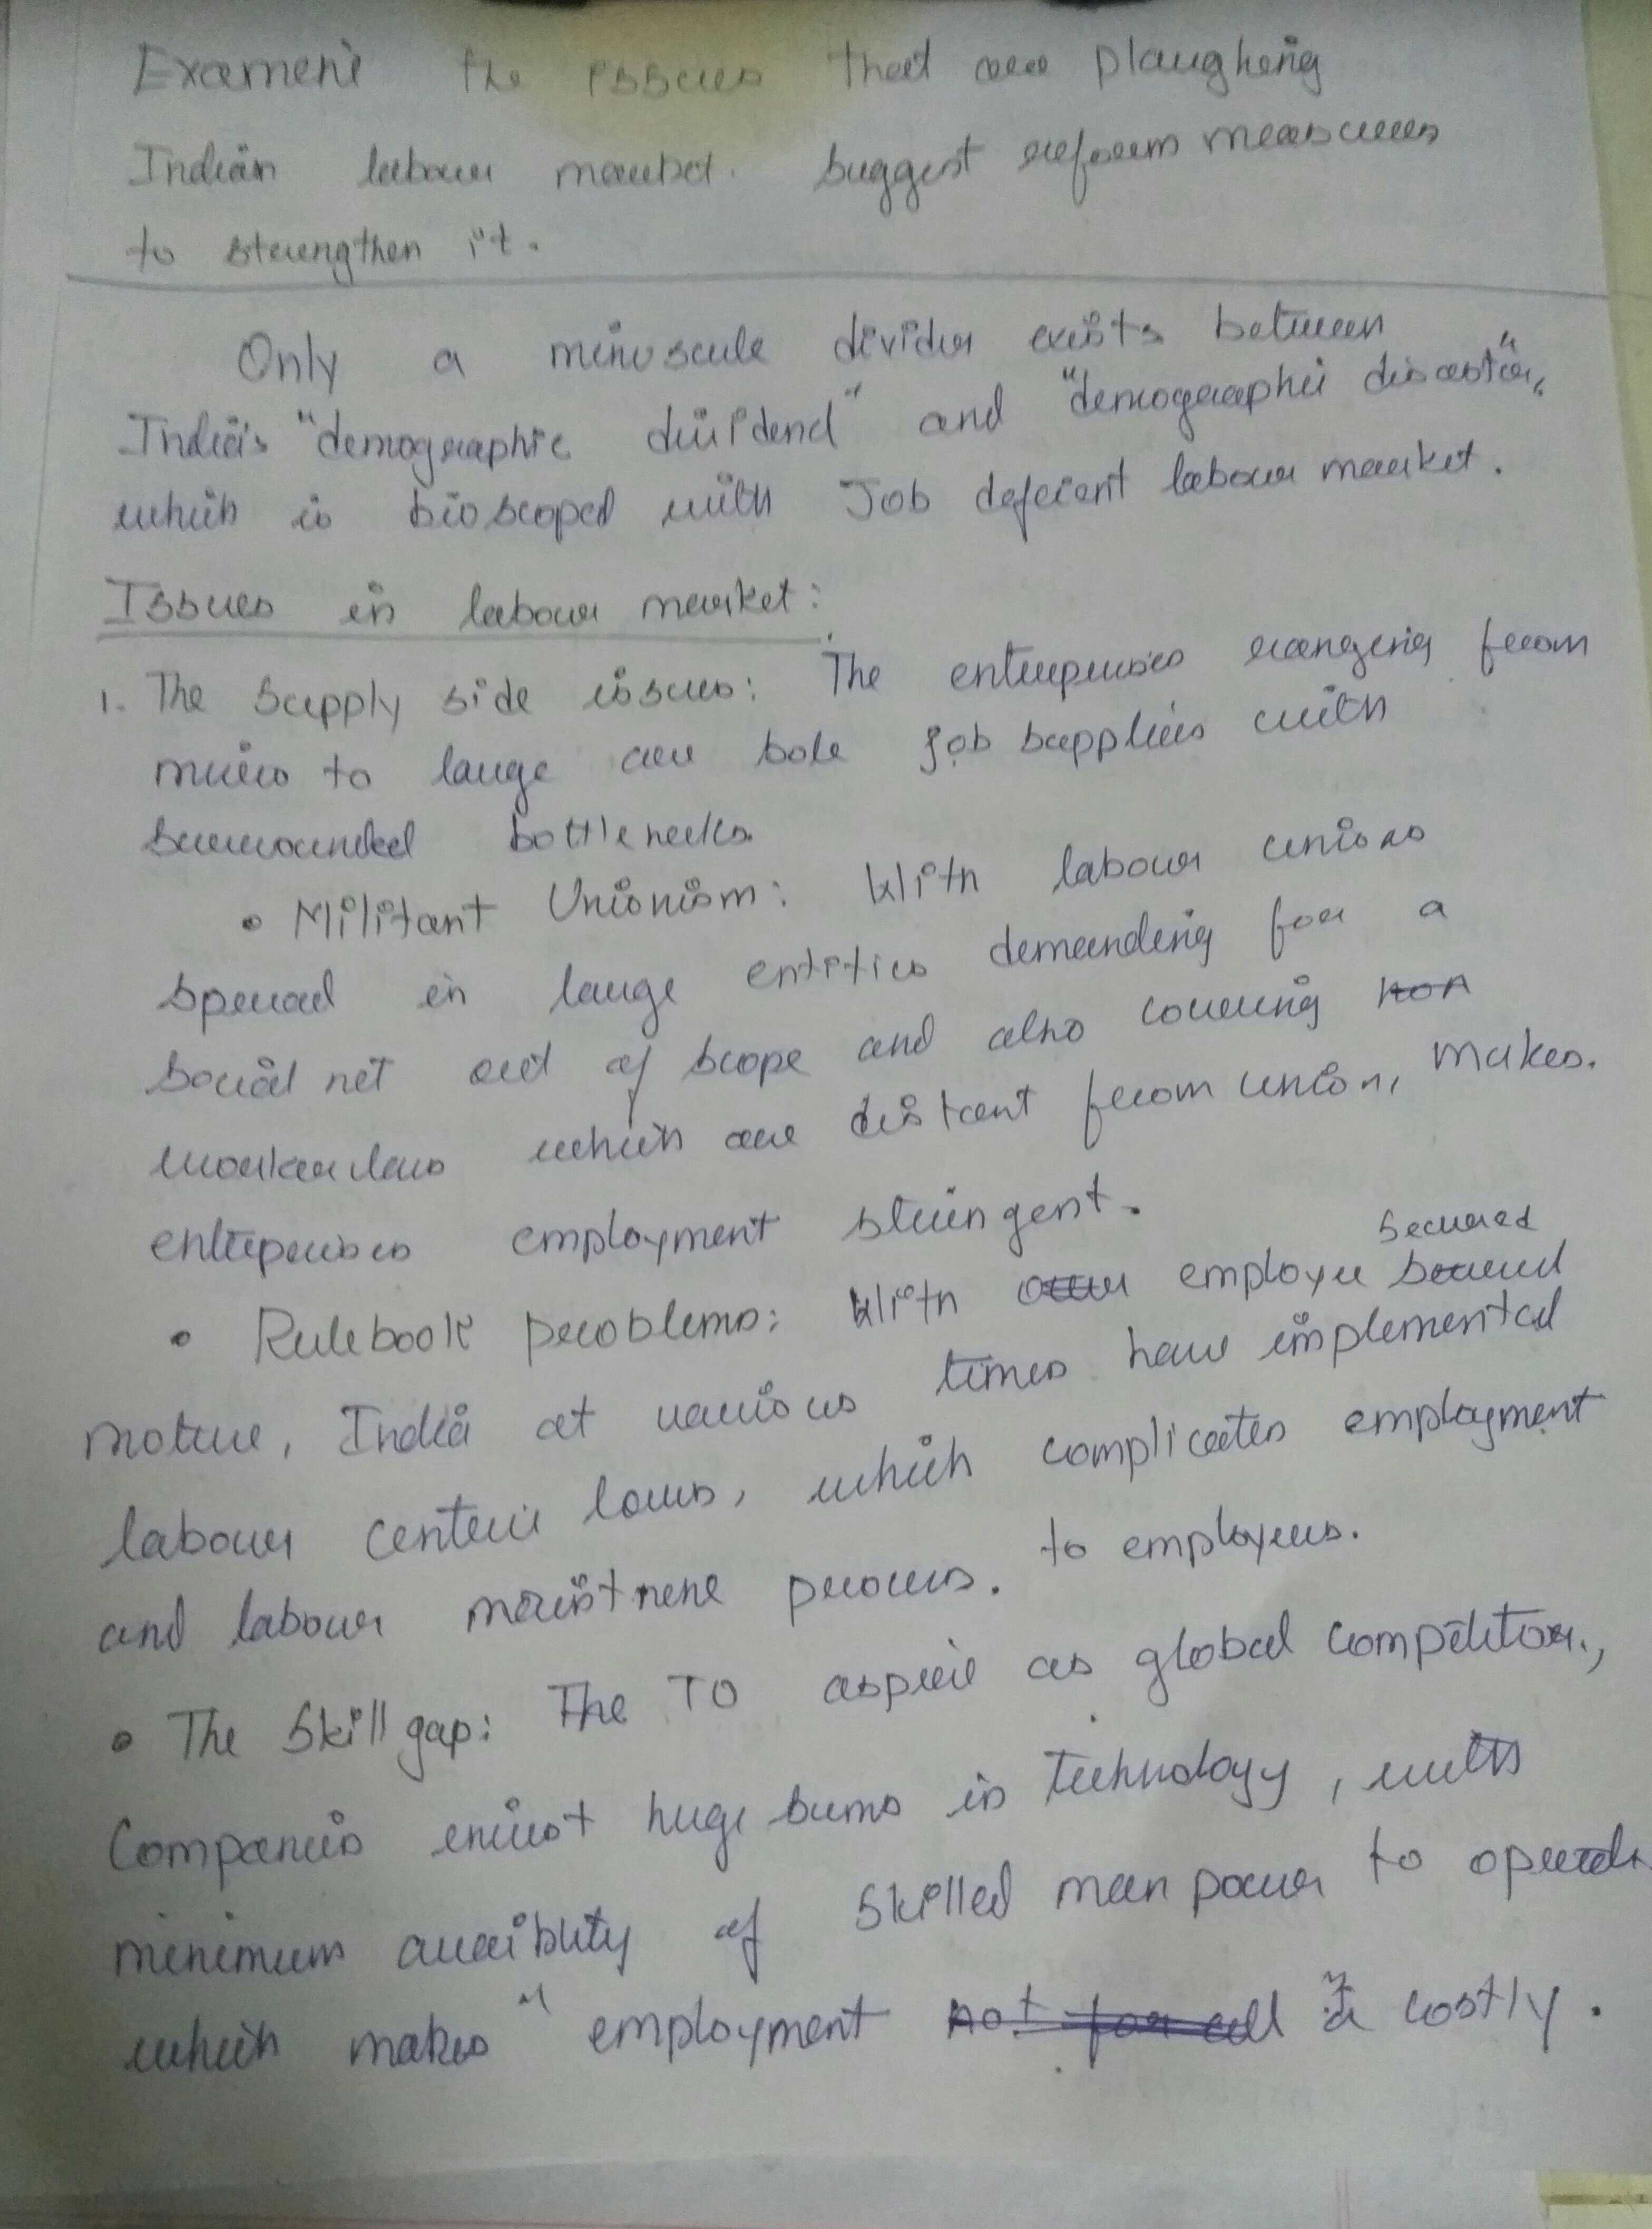 Examine the issues that are plaugheing
Indian labour market. Suggest reform measures
to strengthen it.
Only a minuscule divider exists between
India's "demographic dividend" and "demographic disaster",
which is bioscoped with Job deficient labour market.
Issues in labour market:
1. The supply side issues: The enterprises ranging from
micro to large are sole job suppliers with
surrounded bottlenecks
• Militant Unionism: With labour unions
spread in large entities demanding for a
social net out of scope and also covering non
worker laws which are distant from union, makes.
enterprises employment stringent.
• Rulebook problems: With employee secured
motive, India at various times have implemented
labour centric laws, which complicates employment
and labour process. to employers.
• The Skill gap: The TO aspire as global competitor,
Companies invest huge sums in Technology, with
minimum of skilled man power to operate
which makes employment not for all costly.